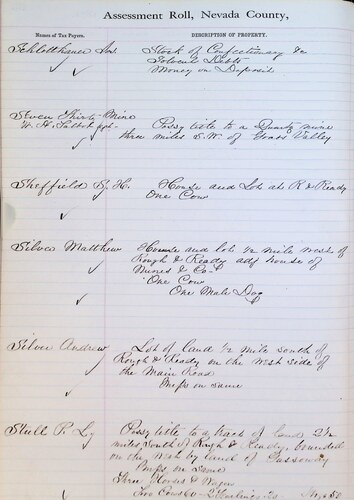 Assessment Roll, Nevada County,
Names of Tax Payers. DESCRIPTION OF PROPERTY.
Stock of Confectionary &c
Solvent Debts
Money on Deposit
Mine
W. H. Talbot Possy title to a Quartz mine
three miles S.W. of Grass Valley
Sheffield S. H. House and Lot at R & Ready
One Cow
Silver Matthew House and lot ½ mile west of
Rough & Ready adj house of
Mines & Co
One Cow
One Male Dog
Silver Andrew Lot of land ½ mile south of
Rough & Ready on the West side of
the Main Road
Imps on same
Stull P. Possy title to a track of land 2½
miles South of Rough & Ready, bounded
on the West by land of
Imps on Same
Horses & Wagon
Two Cows 60